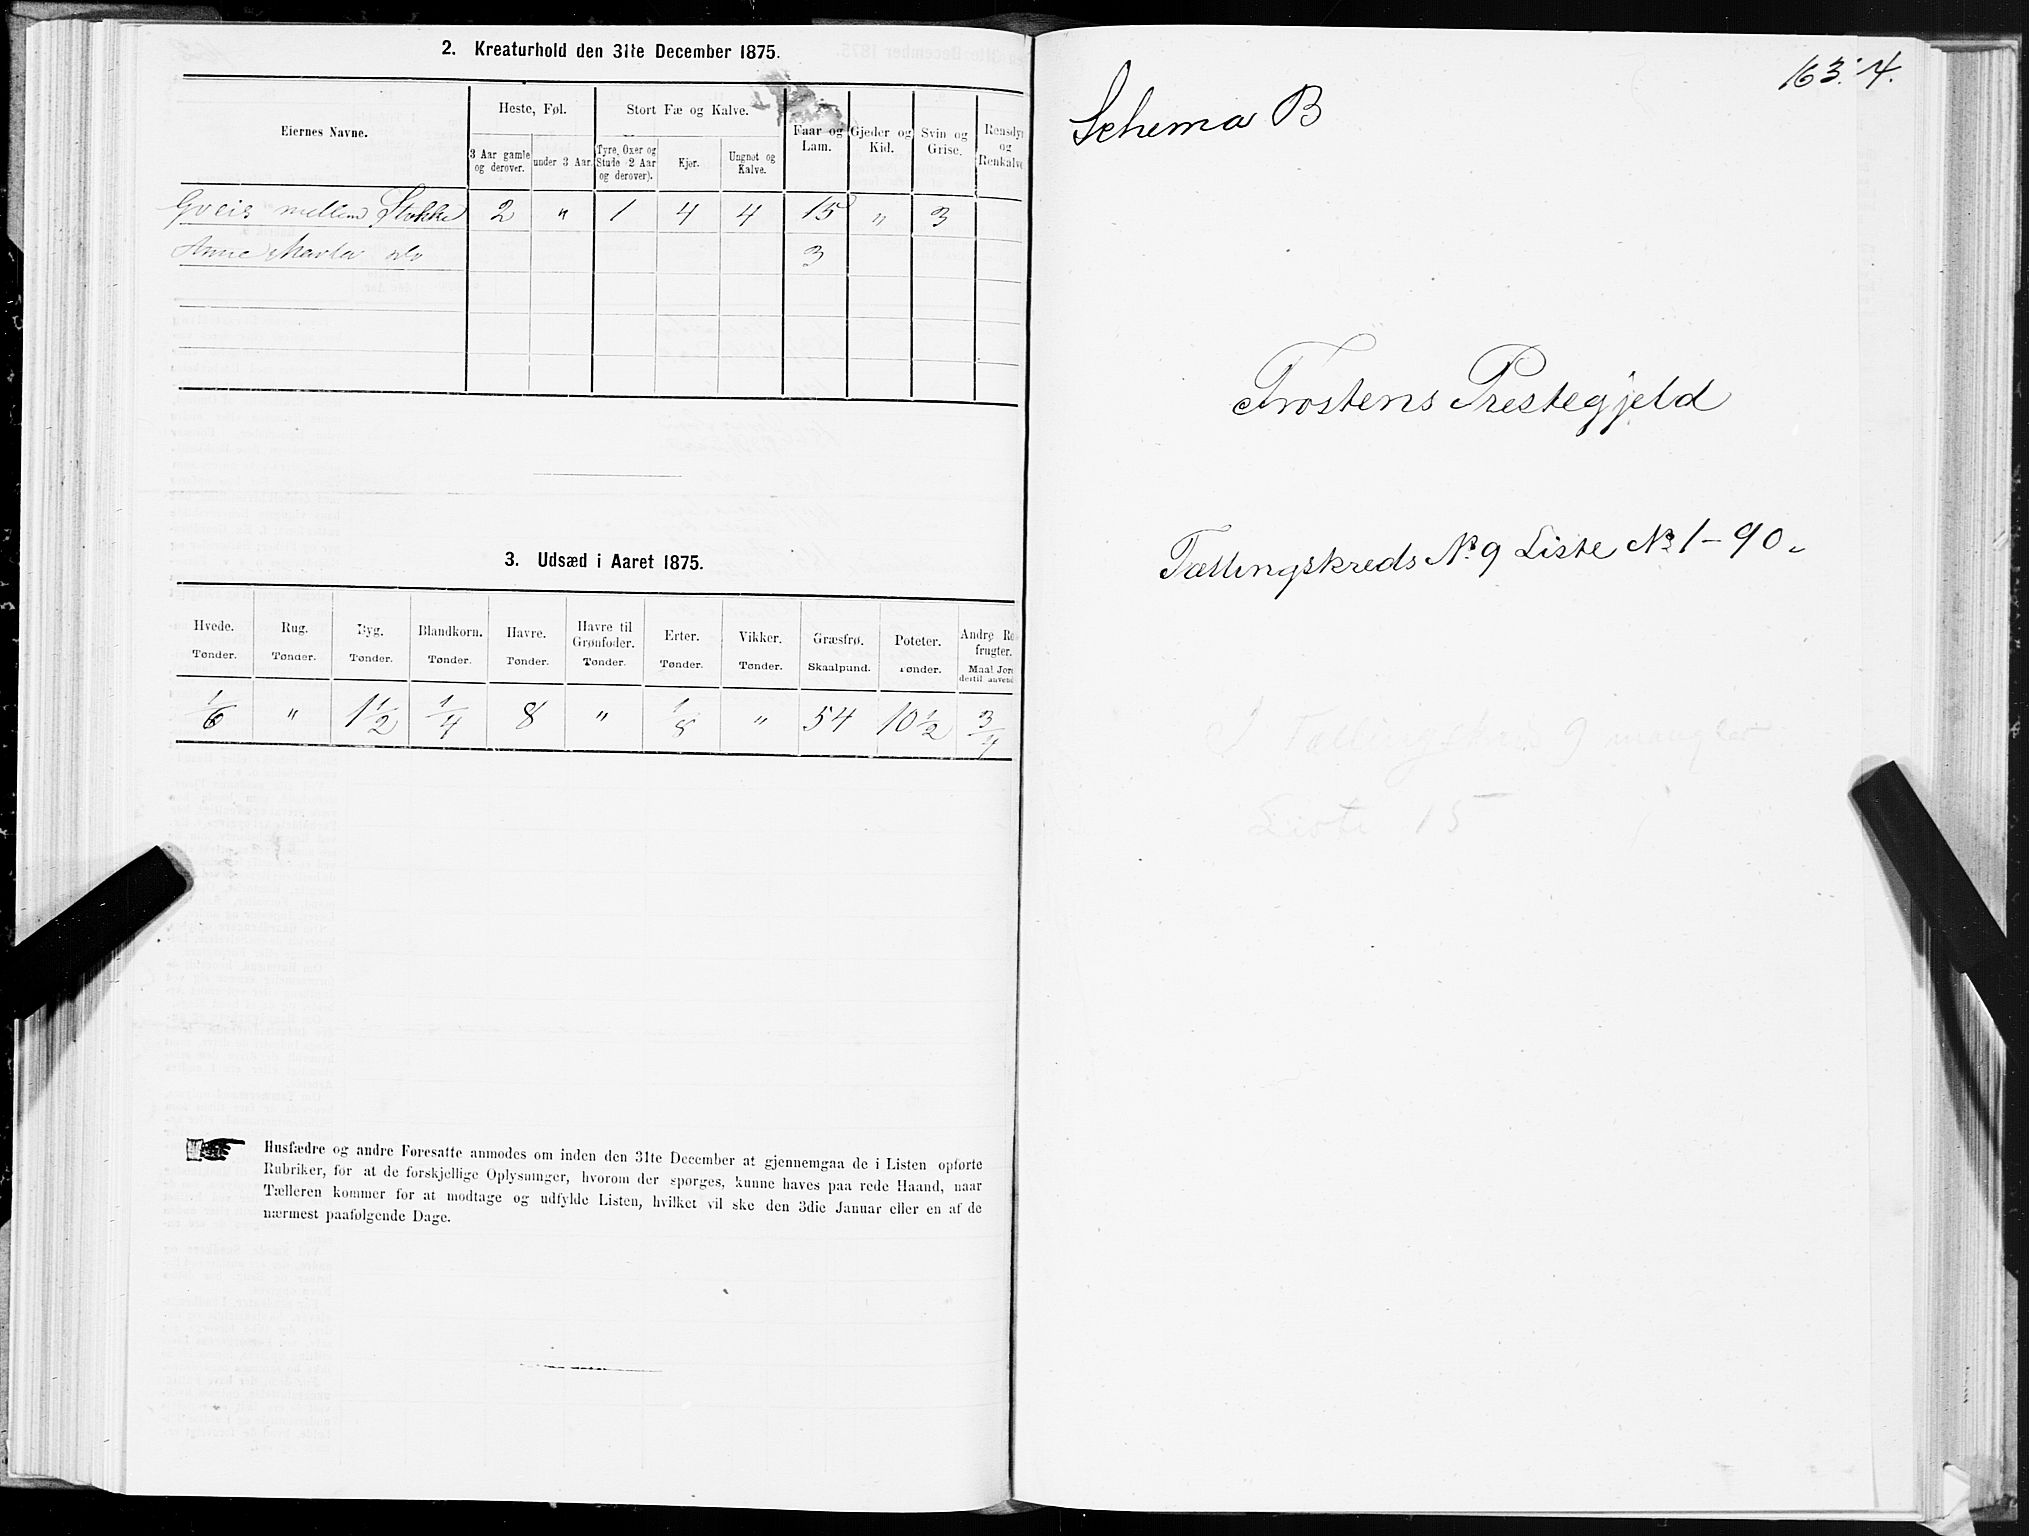 2. Kreaturhold den 31te December 1875.
Eiernes Navne.
Heste, Føl.
Stort Fæ og Kalve.
Faar og Lam.
Gjeder og Kid.
Svin og Grise.
Rensdyr og Renkalve
3 Aar gamle og derover.
under 3 Aar.
Tyre, Oxer og Stude (2 Aar og derover).
Kjør.
Ungnøt og Kalve.
mellem Stokke 2 " 1 4 4 15 " 3
Anne Marta do 3
3. Udsæd i Aaret 1875.
Hvede. Rug. Byg. Blandkorn. Havre. Havre til Grønfoder. Erter. Vikker. Græsfrø. Poteter. Andre Ro frugter.
Tønder. Tønder. Tønder. Tønder. Tønder. Tønder. Tønder. Tønder. Skaalpund. Tønder. Maal Jord dertil anvend
1/6 " 1 1/2 1/4 8 " 1/8 " 54 10 1/2 3/4
Husfædre og andre Foresatte anmodes om inden den 31te December at gjennemgaa de i Listen opførte
Rubriker, for at de forskjellige Oplysninger, hvorom der spørges, kunne haves paa rede Haand, naar
Tælleren kommer for at modtage og udfylde Listen, hvilket vil ske den 3die Januar eller en af de
nærmest paafølgende Dage.
163.4.
Schema B
Frostens Prestegjeld
Tællingskreds No. 9 Liste No. 1-90.
I Tællingskreds 9 mangler
Liste 15